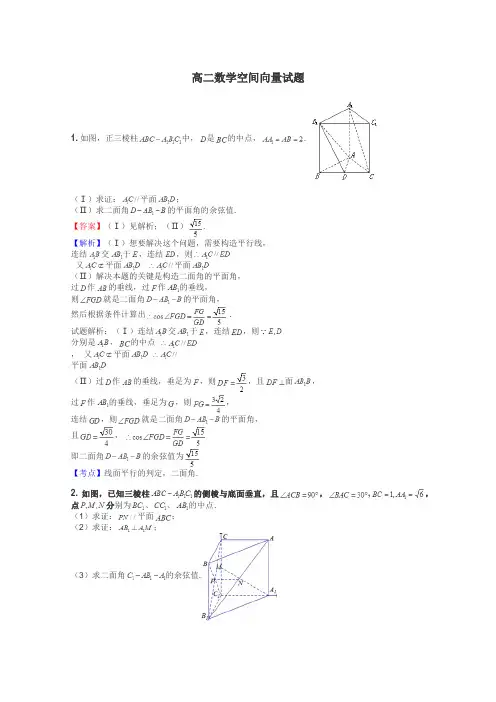 高二数学空间向量试题
A₁
B₁
C₁
A
B
D
C
1. 如图，正三棱柱ABC－A₁B₁C₁中，D是BC的中点，AA₁＝AB＝2．
（Ⅰ）求证：A₁C∥平面AB₁D；
（Ⅱ）求二面角D－AB₁－B的平面角的余弦值．
【答案】（Ⅰ）见解析；（Ⅱ）√15/5．
【解析】（Ⅰ）想要解决这个问题，需要构造平行线，
连结A₁B交AB₁于E，连结ED，则∴A₁C∥ED
又A₁C⊄平面AB₁D ∴A₁C∥平面AB₁D
（Ⅱ）解决本题的关键是构造二面角的平面角，
过D作AB的垂线，过F作AB₁的垂线，
则∠FGD就是二面角D－AB₁－B的平面角，
然后根据条件计算出∴cos∠FGD＝FG/GD＝√15/5．
试题解析：（Ⅰ）连结A₁B交AB₁于E，连结ED，则∵E,D
分别是A₁B，BC的中点 ∴A₁C∥ED
， 又A₁C⊄平面AB₁D ∴A₁C∥
平面AB₁D
（Ⅱ）过D作AB的垂线，垂足为F，则DF＝√3/2，且DF⊥面AB₁B，
过F作AB₁的垂线，垂足为G，则FG＝3√2/4，
连结GD，则∠FGD就是二面角D－AB₁－B的平面角，
且GD＝√30/4，∴cos∠FGD＝FG/GD＝√15/5
即二面角D－AB₁－B的余弦值为√15/5
【考点】线面平行的判定，二面角．
2. 如图，已知三棱柱ABC－A₁B₁C₁的侧棱与底面垂直，且∠ACB＝90°，∠BAC＝30°，BC＝1，AA₁＝√6，
点P,M,N分别为BC₁、CC₁、AB₁的中点．
（1）求证：PN∥平面ABC；
（2）求证：AB₁⊥A₁M；
（3）求二面角C₁－AB₁－A₁的余弦值．
C
A
B
M
P
N
C₁
A₁
B₁